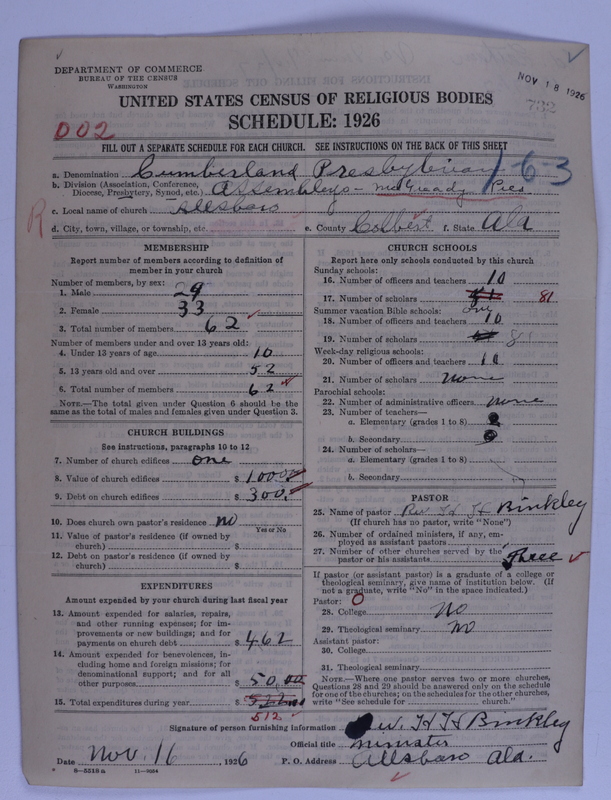 DEPARTMENT OF COMMERCE
BUREAU OF THE CENSUS
WASHINGTON
NOV 18 1926
732
UNITED STATES CENSUS OF RELIGIOUS BODIES
SCHEDULE: 1926
002
FILL OUT A SEPARATE SCHEDULE FOR EACH CHURCH. SEE INSTRUCTIONS ON THE BACK OF THIS SHEET
a. Denomination Cumberland Presbyterian 1-6-3
b. Division (Association, Conference, Diocese, Presbytery, Synod, etc.) Assembleys - McGready Pres
c. Local name of church Allsboro
R
d. City, town, village, or township, etc. e. County Colbert f. State Ala
MEMBERSHIP
Report number of members according to definition of member in your church
Number of members, by sex:
1. Male 29
2. Female 33
3. Total number of members 62
Number of members under and over 13 years old:
4. Under 13 years of age 10
5. 13 years old and over 52
6. Total number of members 62
NOTE.—The total given under Question 6 should be the same as the total of males and females given under Question 3.
CHURCH BUILDINGS
See instructions, paragraphs 10 to 12
7. Number of church edifices one
8. Value of church edifices $ 1000.00
9. Debt on church edifices $ 300.
10. Does church own pastor's residence No
Yes or No
11. Value of pastor's residence (if owned by church) $
12. Debt on pastor's residence (if owned by church) $
EXPENDITURES
Amount expended by your church during last fiscal year
13. Amount expended for salaries, repairs, and other running expenses; for improvements or new buildings; and for payments on church debt $ 462
14. Amount expended for benevolences, including home and foreign missions; for denominational support; and for all other purposes $ 50.00
15. Total expenditures during year $
512
CHURCH SCHOOLS
Report here only schools conducted by this church
Sunday schools:
16. Number of officers and teachers 10
17. Number of scholars 81
Summer vacation Bible schools:
18. Number of officers and teachers 10
19. Number of scholars
Week-day religious schools:
20. Number of officers and teachers 10
21. Number of scholars none
Parochial schools:
22. Number of administrative officers none
23. Number of teachers—
a. Elementary (grades 1 to 8)
b. Secondary
24. Number of scholars—
a. Elementary (grades 1 to 8)
b. Secondary
PASTOR
25. Name of pastor Rev H H Binkley
(If church has no pastor, write "None")
26. Number of ordained ministers, if any, employed as assistant pastors
27. Number of other churches served by the pastor or his assistants Three
If pastor (or assistant pastor) is a graduate of a college or theological seminary, give name of institution below. (If not a graduate, write "No" in the space indicated.)
Pastor: O
28. College No
29. Theological seminary No
Assistant pastor:
30. College
31. Theological seminary
NOTE.—Where one pastor serves two or more churches, Questions 28 and 29 should be answered only on the schedule for one of the churches; on the schedules for the other churches, write "See schedule for church."
Signature of person furnishing information Rev. H H Binkley
Official title minister
Date Nov. 16, 1926 P. O. Address Allsboro Ala.
8-5518a 11-9034